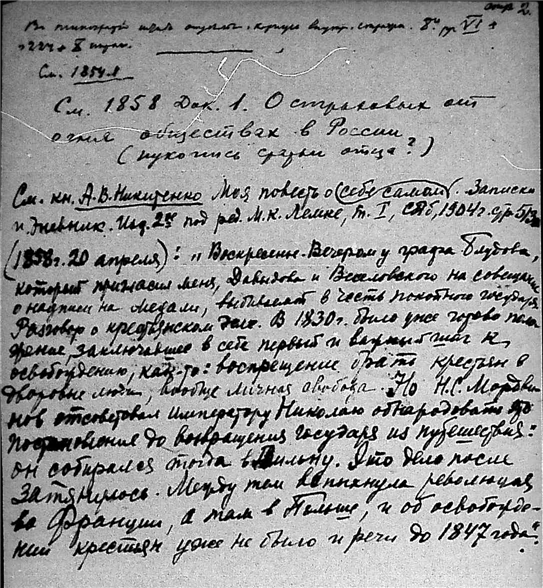 стр 2.
В типограф
См. 1854.8
См. 1858 Док. 1. О страховых от
огня обществах в России
(рукопись статьи отца?)
См. кн. А.В. Никитенко Моя повесть о (себе самом). Записки
и Дневник. Изд. 2ое под ред. М.К. Лемке, т. I, СПб, 1904 г. стр
(1858 г. 20 апреля): „Воскресенье. Вечером у графа Блудова,
который пригласил меня, Давыдова и Веселовского на совещание
о надписи на медали, выбиваемой в честь покойного государя
Разговор о крестьянском деле. В 1830 г. было уже готово поло
жение, заключавшее в себе первый и важный шаг к
освобождению, как-то: воспрещение брать крестьян в
дворовые люди, вообще личная свобода. Но Н.С. Мордви
нов отсоветовал императору Николаю обнародовать это
постановление до возвращения государя из путешествия:
он собирался тогда в Вильну. Это дело после
затянулось. Между тем вспыхнула революция
во Франции, а там в Польше, и об освобожде-
нии крестьян уже не было и речи до 1847 года".